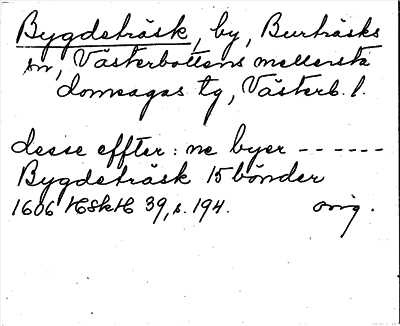 Bygdeträsk, by, Burträsks
sn, Västerbottens mellersta
domsagas tg, Västerb. l.
desse effter: ne byer ------
Bygdeträsk 15 bönder
1606 HSkH 39, s. 194. orig.